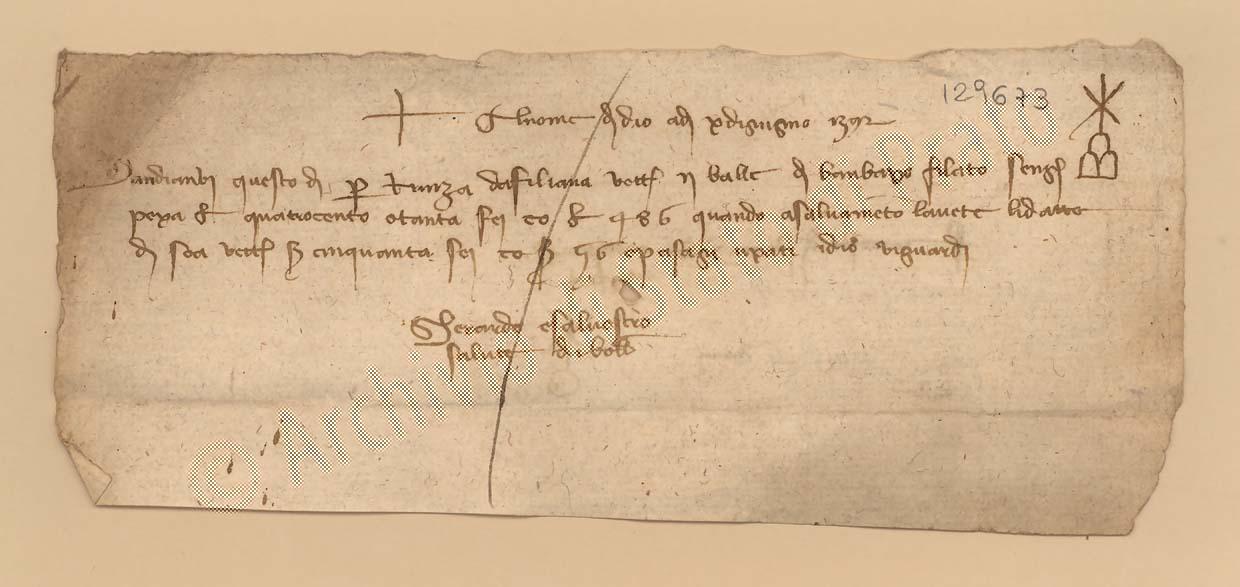 129673
Al nome di dio adì x di giugno 1392
Mandianvi questo dì per da filiana vetturale ii balle di banbagio filato sengnl
pexa £ quatrocento otanta sei co £ 486 quando a salvamento l'avete li date
di soa vettura s cinquanta sei co s 56 e pasagi idio vi guardi
Gherardo e salvestro
salute di
© Archivio di Stato di Prato